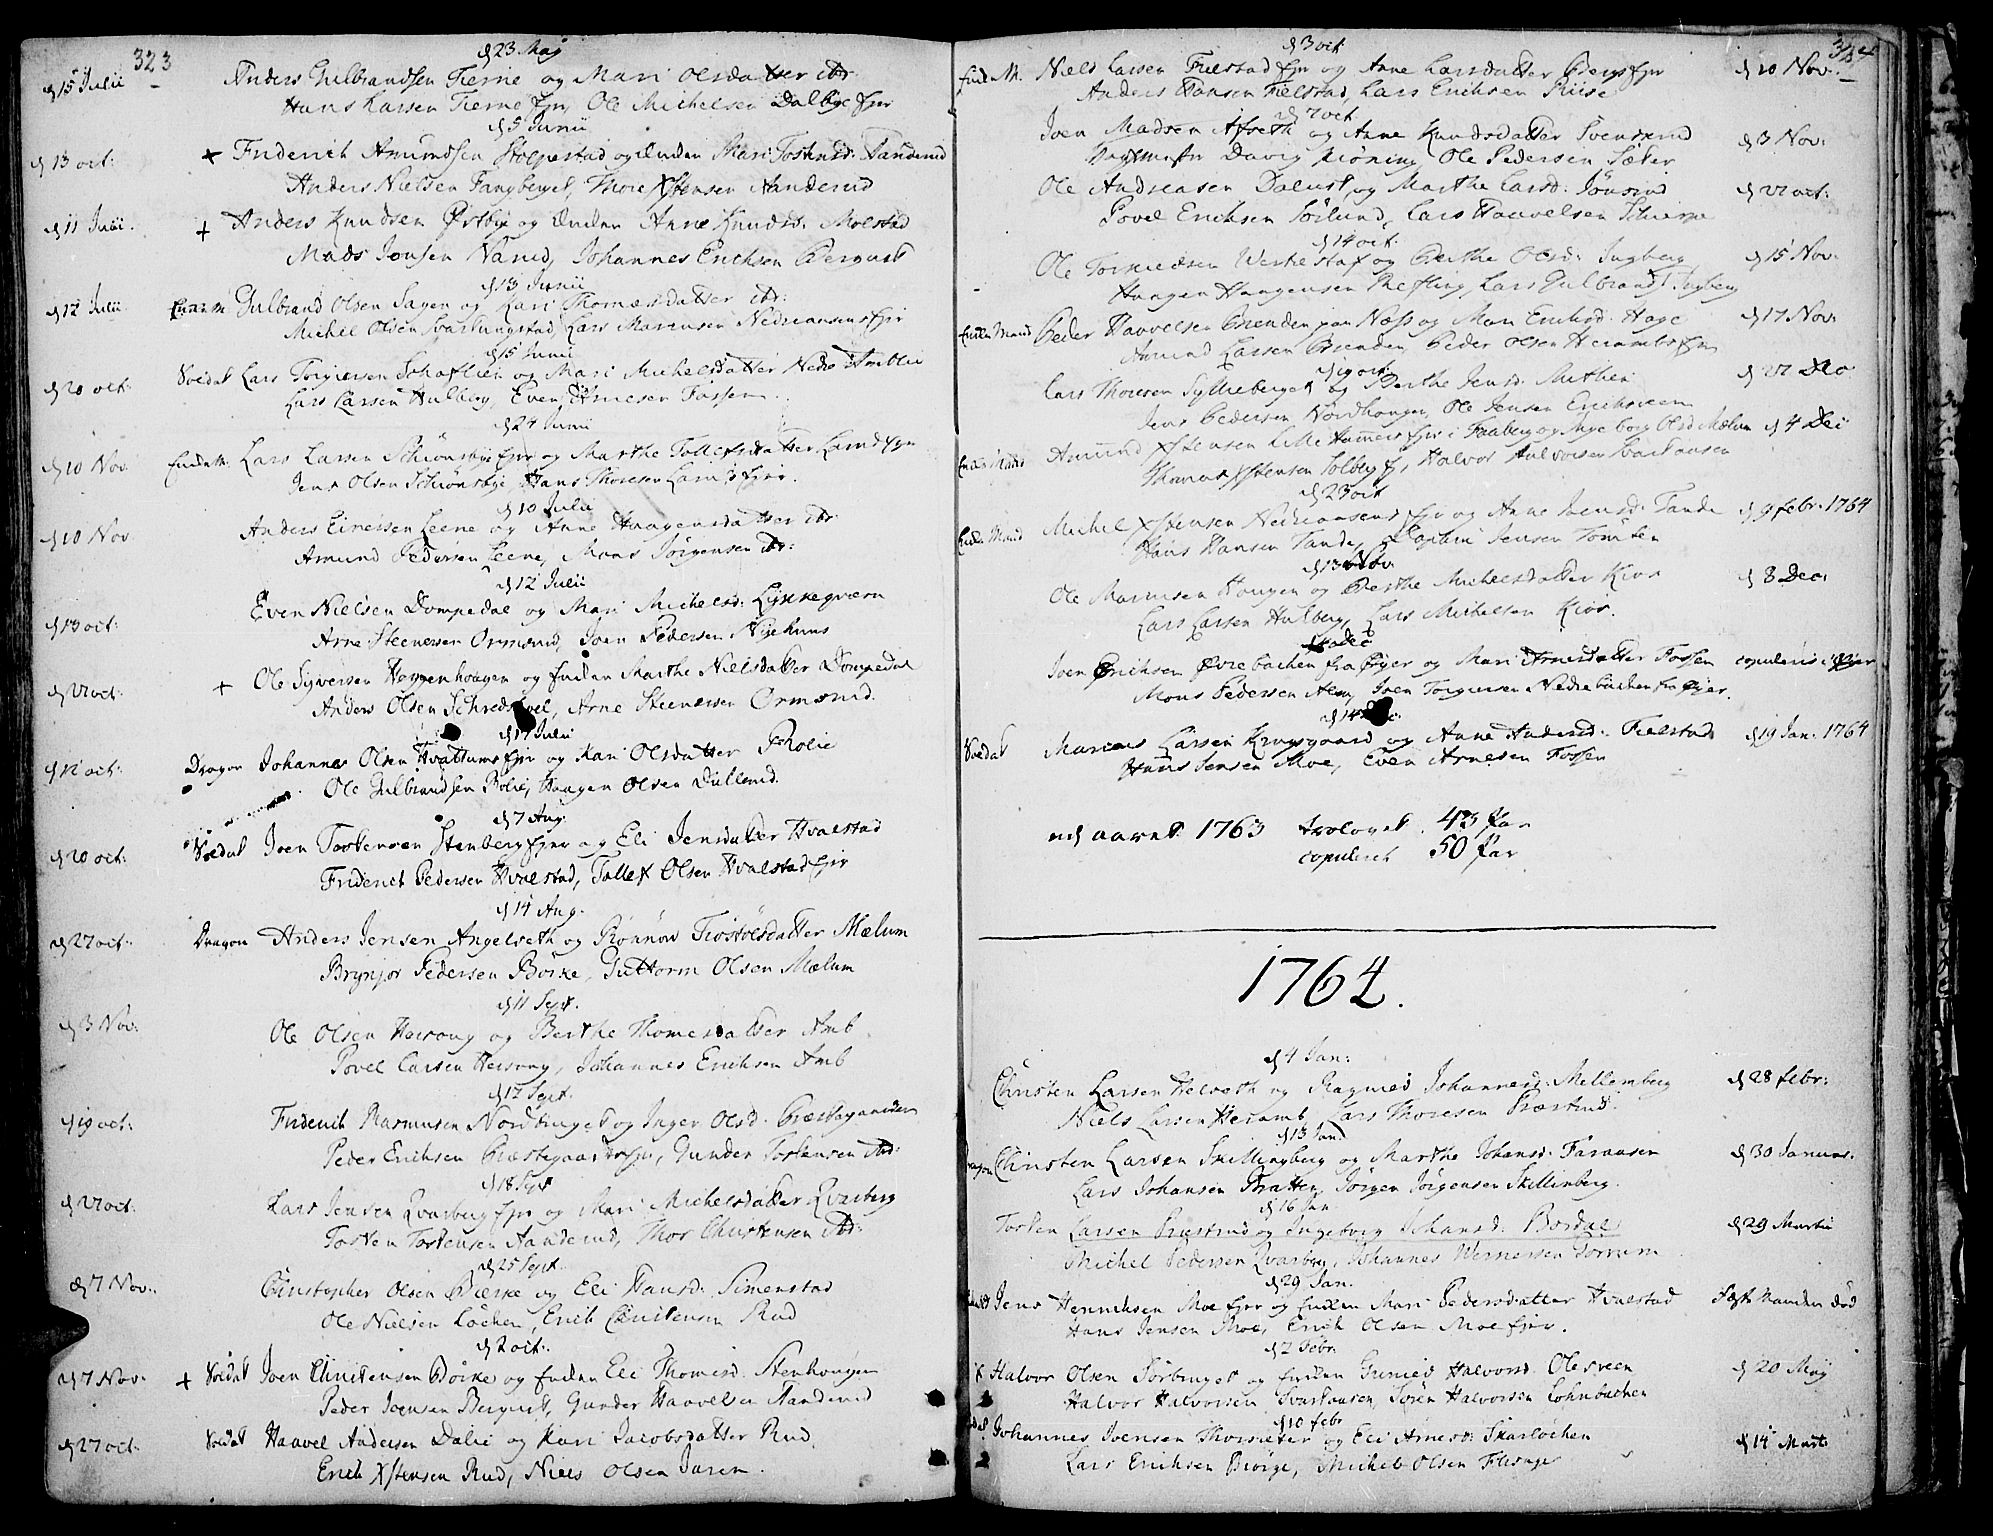 323
d 23 Maj
d 15 Julii Anders Gulbrandsen Tierne og Mari Olsdatter ibd:
Hans Larsen Tierne Ejer, Ole Michelsen Dalbye Ejer
d 5 Junii
d 13 oct: + Friderich Amundsen Stolpestad og Enken Mari Tostensd: Aanderud
Anders Nielsen Fangberget, Thore Xstensen Aanderud
d 11 Julii. + Anders Knudsen Østbye og Enken Anne Knudsd: Molstad
Mads Jonsen Narud, Johannes Erichsen Bergust
d 13 Junii
d 12 Julii Gulbrand Olsen Sagen og Kari Thomæsdatter ibd:
Michel Olsen Svartungstad, Lars Marensen Nedreaansens Ejer
d 15 Junii
d 20 oct: Soldat Lars Torgiersen Schaflien og Mari Michelsdatter Nedre Amblie
Lars Larsen Hulberg, Even Arnesen Fossen
d 24 Junii
d 10 Nov Enkem. Lars Larsen Schiønsbye Ejer og Marthe Tollefsdatter
Jens Olsen Schiønsbye Hans Thoresen
d 10 Julii
d 10 Nov. Anders Einersen Leene og Anne Haagensdatter ibd:
Amund Pedersen Leene, Mons Jørgensen ibd:
d 12 Julii
d 13 oct: Even Nielsen Dompedal og Mari Michelsd: Lykkegræven
Arne Steenersen Ormsrud, Joen Pedersen Nyehuus
d 21 oct: + Ole Syversen Høgenhougen og Enken Marthe Nielsdatter Dompedal
Anders Olsen, Arne Steenersen Ormsrud.
d 17 Julii
d 12 oct: Dragon Johannes Olsen Hvattums Ejer og Kari Olsdatter Rolie
Ole Gulbrandsen Rolie, Haagen Olsen Dullerud.
d 7 Aug.
d 20 oct: Soldat Joen Tostensen Stenberg Ejer og Eli Jensdatter Hvalstad
Friderich Pedersen Hvalstad, Tollef Olsen Hvalstad Ejer
d 14 Aug.
d 27 oct: Dragon Anders Jensen Angelseth og Rønnow Tiostolsdatter Mælum
Brynjor Pedersen Børke, Guttorm Olsen Mælum
d 11 Sept.
d 3 Nov: Ole Olsen Hersoug og Berthe Thomesdatter Amb
Povel Larsen Hersoug, Johannes Erichsen Amb
d 12 Sept.
d 19 oct: Friderich Rasmusen Nordbinget og Inger Olsd. Præstegaarden
Peder Erichsen Præstegaards Ejer, Gunder Tostensen ibd:
d 18 Sept
d 21 oct: Lars Jensen Qvarberg Ejer og Mari Michelsdatter Qvarberg
Tosten Tostensen Aanderud, Thor Christensen ibd:
d 25 Sept.
d 7 Nov: Christopher Olsen Bierke og Eli Hansd. Simenstad
Ole Nielsen Løcken, Erich Christensen Rud
d 2 oct:
d 7 Nov. + Soldat Joen Christensen Børke og Enken Eli Thomesd. Stenhougen
Peder Joensen Bergust, Gunder Haavelsen Aanderud
d 27 oct: Soldat Haavel Andersen Dalie og Kari Jacobsdatter Rud
Erich Xstensen Rud, Niels Olsen Jaren.
324
d 3 oct
Enke M. Niels Larsen Fielstad Ejer og Anne Larsdatter Bergs Ejer d 10 Nov.
Anders Hansen Fielstad, Lars Erichsen Riise
d 7 oct.
Joen Madsen Afseth og Anne Knudsdatter Svensrud d 3 Nov:
David Kiøning, Ole Pedersen Sæter
Ole Andreasen Dalust og Marthe Larsd: Jønsrud d 21 oct:
Povel Erichsen Sørlund, Lars Haavelsen Schierpe
d 14 oct.
Ole Torgiedsen Werkestaf og Berthe Olsd: Jugberg d 15 Nov.
Haagen Haagensen Refling, Lars Gulbrands Jugberg
Enke Mand Peder Haavelsen Brenden paa Næss og Mari Erichsd. Hage d 17 Nov:
Amund Larsen Brenden, Peder Olsen Herambs Ejer
d 19 oct.
Lars Thoresen Sylleberget og Berthe Jensd. Mæhlen d 21 Dec
Jens Pedersen Nordhougen, Ole Jensen Erichsveen
Enke Mand Amund Xstensen Lille Hamers Ejer i Faaberg og Ingeborg Olsd Mælum d 4 Dec
Thomas Xstensen Solberg E, Halvor Halvorsen Svartaasen
d 23 oct
Enke Mand Michel Xstensen Nedreaansens Ejer og Anne Joensd. Tande d 9 febr. 1764
Hans Hansen Tande, Jensen Tomten
d 13 Nov.
Ole Marensen Hougen og Berthe Michelsdatter Kiør d 8 Dec:
Lars Larsen Hulberg, Lars Michelsen Kiør.
Dec
Joen Erichsen Øvrebachen fra Øyer og Mari Arnesdatter Fossen copuleris i Øyer
Mons Pedersen Alm, Joen Torgiersen Nedrebachen fra Øyer.
d 14
Soldat Marcus Larsen Krogsgaard og Anne Andersd: Fielstad d 19 Jan: 1764
Hans Jensen Moe, Even Arnesen Fossen
udj aaret 1763 trolovet 43 Par
copuleret 50 Par
1764.
d 4 Jan:
Christen Larsen Helseth og Ragnild Johannesd. Mellemberg d 28 febr:
Niels Larsen Heramb, Lars Thoresen Præstrud.
d 13 Jan.
Dragon Christen Larsen Skillingberg og Marthe Johansd: Faraasen d 30 Januar:
Lars Johansen Bratten, Jørgen Jørgensen Skillinberg.
d 16 Jan
Tosten Larsen Præstrud og Ingeborg Johansd: Bordal d 29 Martii
Michel Pedersen Qvarberg, Johannes Wernersen Torrum
d 29 Jan.
Jens Henrichsen Moe Ejer og Enken Mari Pedersdatter Hvalstad Fæste Manden død
Hans Jensen Moe, Erich Olsen Moe Ejer.
d 2 Febr.
Halvor Olsen Sørbinget og Enken Gunild Halvorsd. Olesveen d 20 Maij
Halvor Halvorsen Svartaasen, Søren Halvorsen Lohnbachen
d 10 febr
Johannes Iversen Thorsæter og Eli Arnesd: Skarløchen d 14 Marti
Lars Erichsen Biørge, Michel Olsen Flisnge